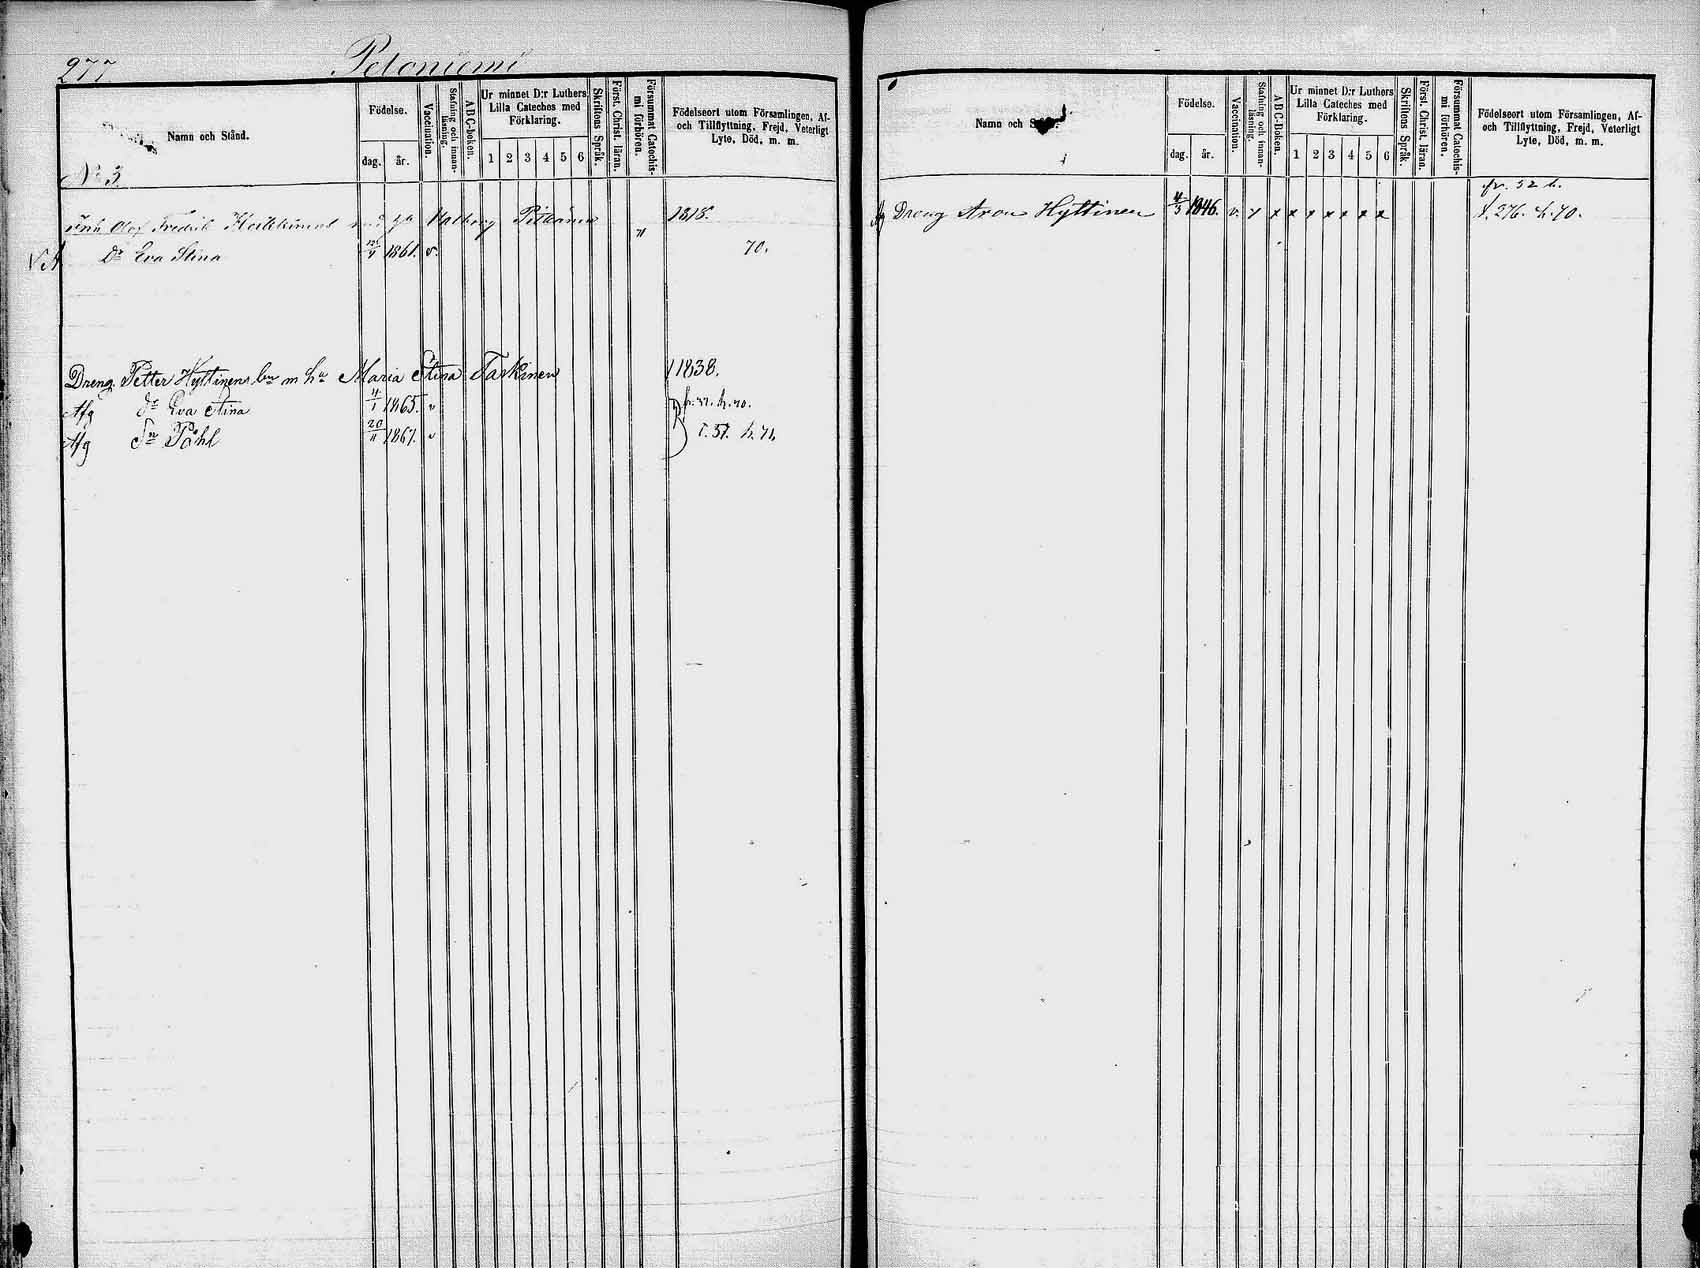 277
Petoniemi
Namn och Stånd.
Födelse.
dag.
år.
Vaccination.
Stafning och innan-läsning.
ABC-boken.
Ur minnet D:r Luthers
Lilla Cateches med
Förklaring.
1 2 3 4 5 6
Skriftens Språk.
Först. Christ. läran.
Försummat Catechis-
mi förhören.
Födelseort utom Församlingen, Af-
och Tillflyttning, Frejd, Veterligt
Lyte, Död, m. m.
No 3
Inh. Olof Fredrik Heikkinens Walborg Pitkänen 1818.
Dr Eva Stina 1861. v. 70.
Dreng. Petter Hyttinens bn m hu Maria Stina Taskinen 1838.
Afg dr Eva Stina 4/1 1865. v fr. 37. h. 70.
Afg Sn Påhl 20/11 1867. v t. 37. h. 71.
Namn och
Födelse.
dag.
år.
Vaccination.
Stafning och innan-läsning.
ABC-Boken.
Ur minnet D:r Luthers
Lilla Cateches med
Förklaring.
1 2 3 4 5 6
Skriftens Språk.
Först. Christ. läran.
Försummat Catechis-
mi förhören.
Födelseort utom Församlingen, Af-
och Tillflyttning, Frejd, Veterligt
Lyte, Död, m. m.
fr. 52 h.
Afg Dreng Aron Hyttinen 1846. v. x x x x x x x x t. 276. h. 70.